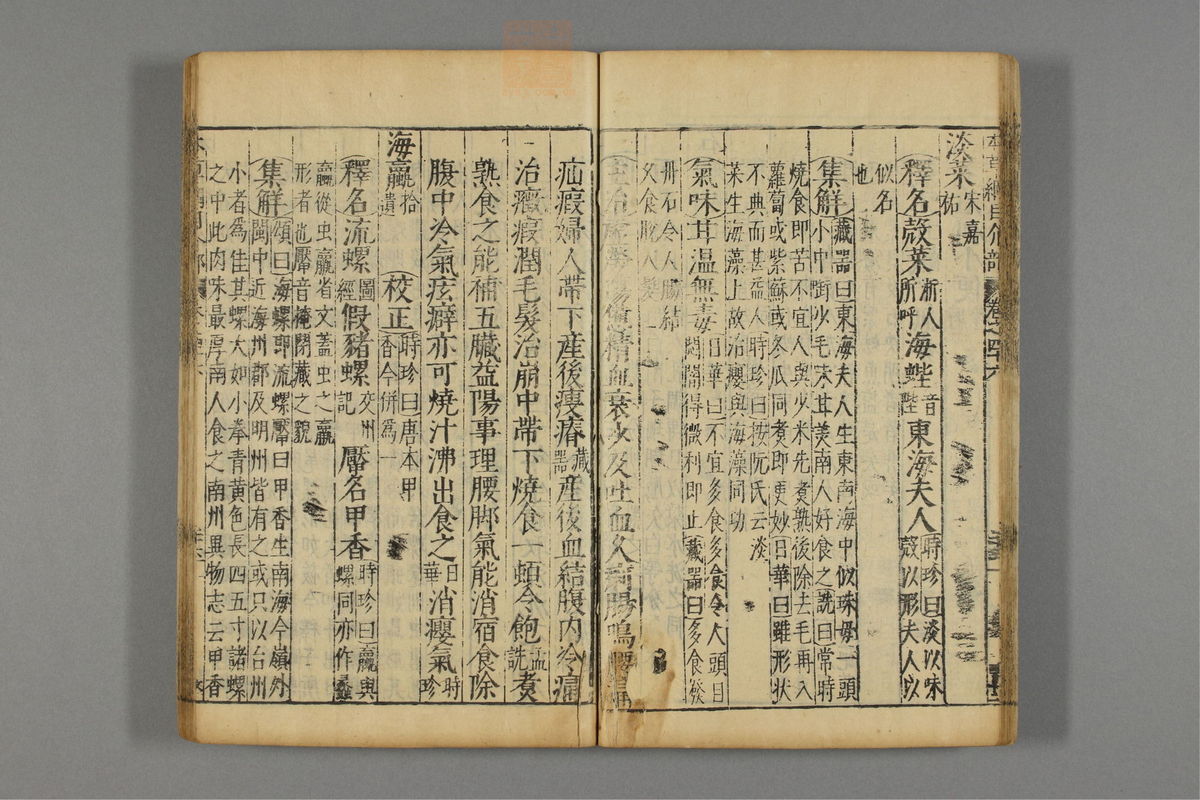 本草綱目介部 卷之四十六
淡菜 宋嘉祐
釋名 殼菜 浙人所呼 海蜌 音陛 東海夫人 時珍曰淡以味殼以形夫人以
似名也
集解 藏器曰東海夫人生東南海中似珠母一頭
小中銜少毛味甘美南人好食之詵曰常時
燒食即苦不宜人與少米先煮熟後除去毛再入
蘿蔔或紫蘇或冬瓜同煮即更妙日華曰雖形狀
不典而甚益人時珍曰按阮氏云淡
菜生海藻上故治癭與海藻同功
氣味甘溫無毒 日華曰不宜多食多食令人頭目悶闇得微利即止藏器曰多食發
丹石令人腸結
久食脫人髮
主治 傷精血衰少及吐血久痢腸鳴腰痛
疝瘕婦人帶下產後瘦瘠 藏器 產後血結腹內冷痛
治癥瘕潤毛髮治崩中帶下燒食一頓令飽 孟詵 煮
熟食之能補五臟益陽事理腰脚氣能消宿食除
腹中冷氣痃癖亦可燒汁沸出食之 日華 消癭氣 時珍
海蠃 拾遺 校正 時珍曰唐本甲香今併為一
釋名 流螺 圖經 假豬螺 交州記 厴名甲香 時珍曰蠃與螺同亦作蠡
蠃從虫羸省文蓋虫之羸
形者也厴音掩閉藏之貌
集解 頌曰海螺即流螺厴曰甲香生南海今嶺外
閩中近海州郡及明州皆有之或只以台州
小者為佳其螺大如小拳青黃色長四五寸諸螺
之中此肉味最厚南人食之南州異物志云甲香